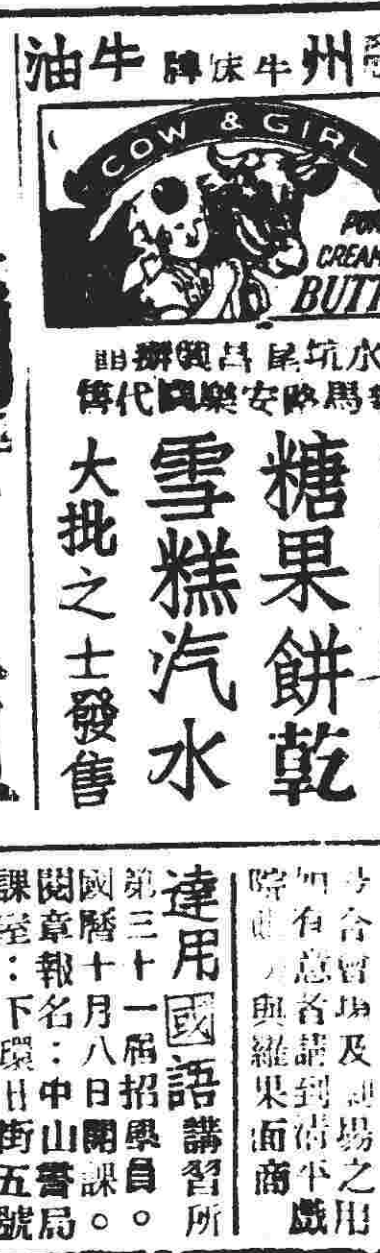 州牛妹牌牛油
COW & GIRL
CREAM
BUTT
水坑尾昌興辦
馬路安樂園代售
糖果餅乾
雪糕汽水
大批之士發售
合會場及場之用
如有意者請到清平戲
院與羅果面商
達用國語講習所
第三十一屆招學員。
國曆十月八日開課。
閱章報名：中山書局
課室：下環街五號